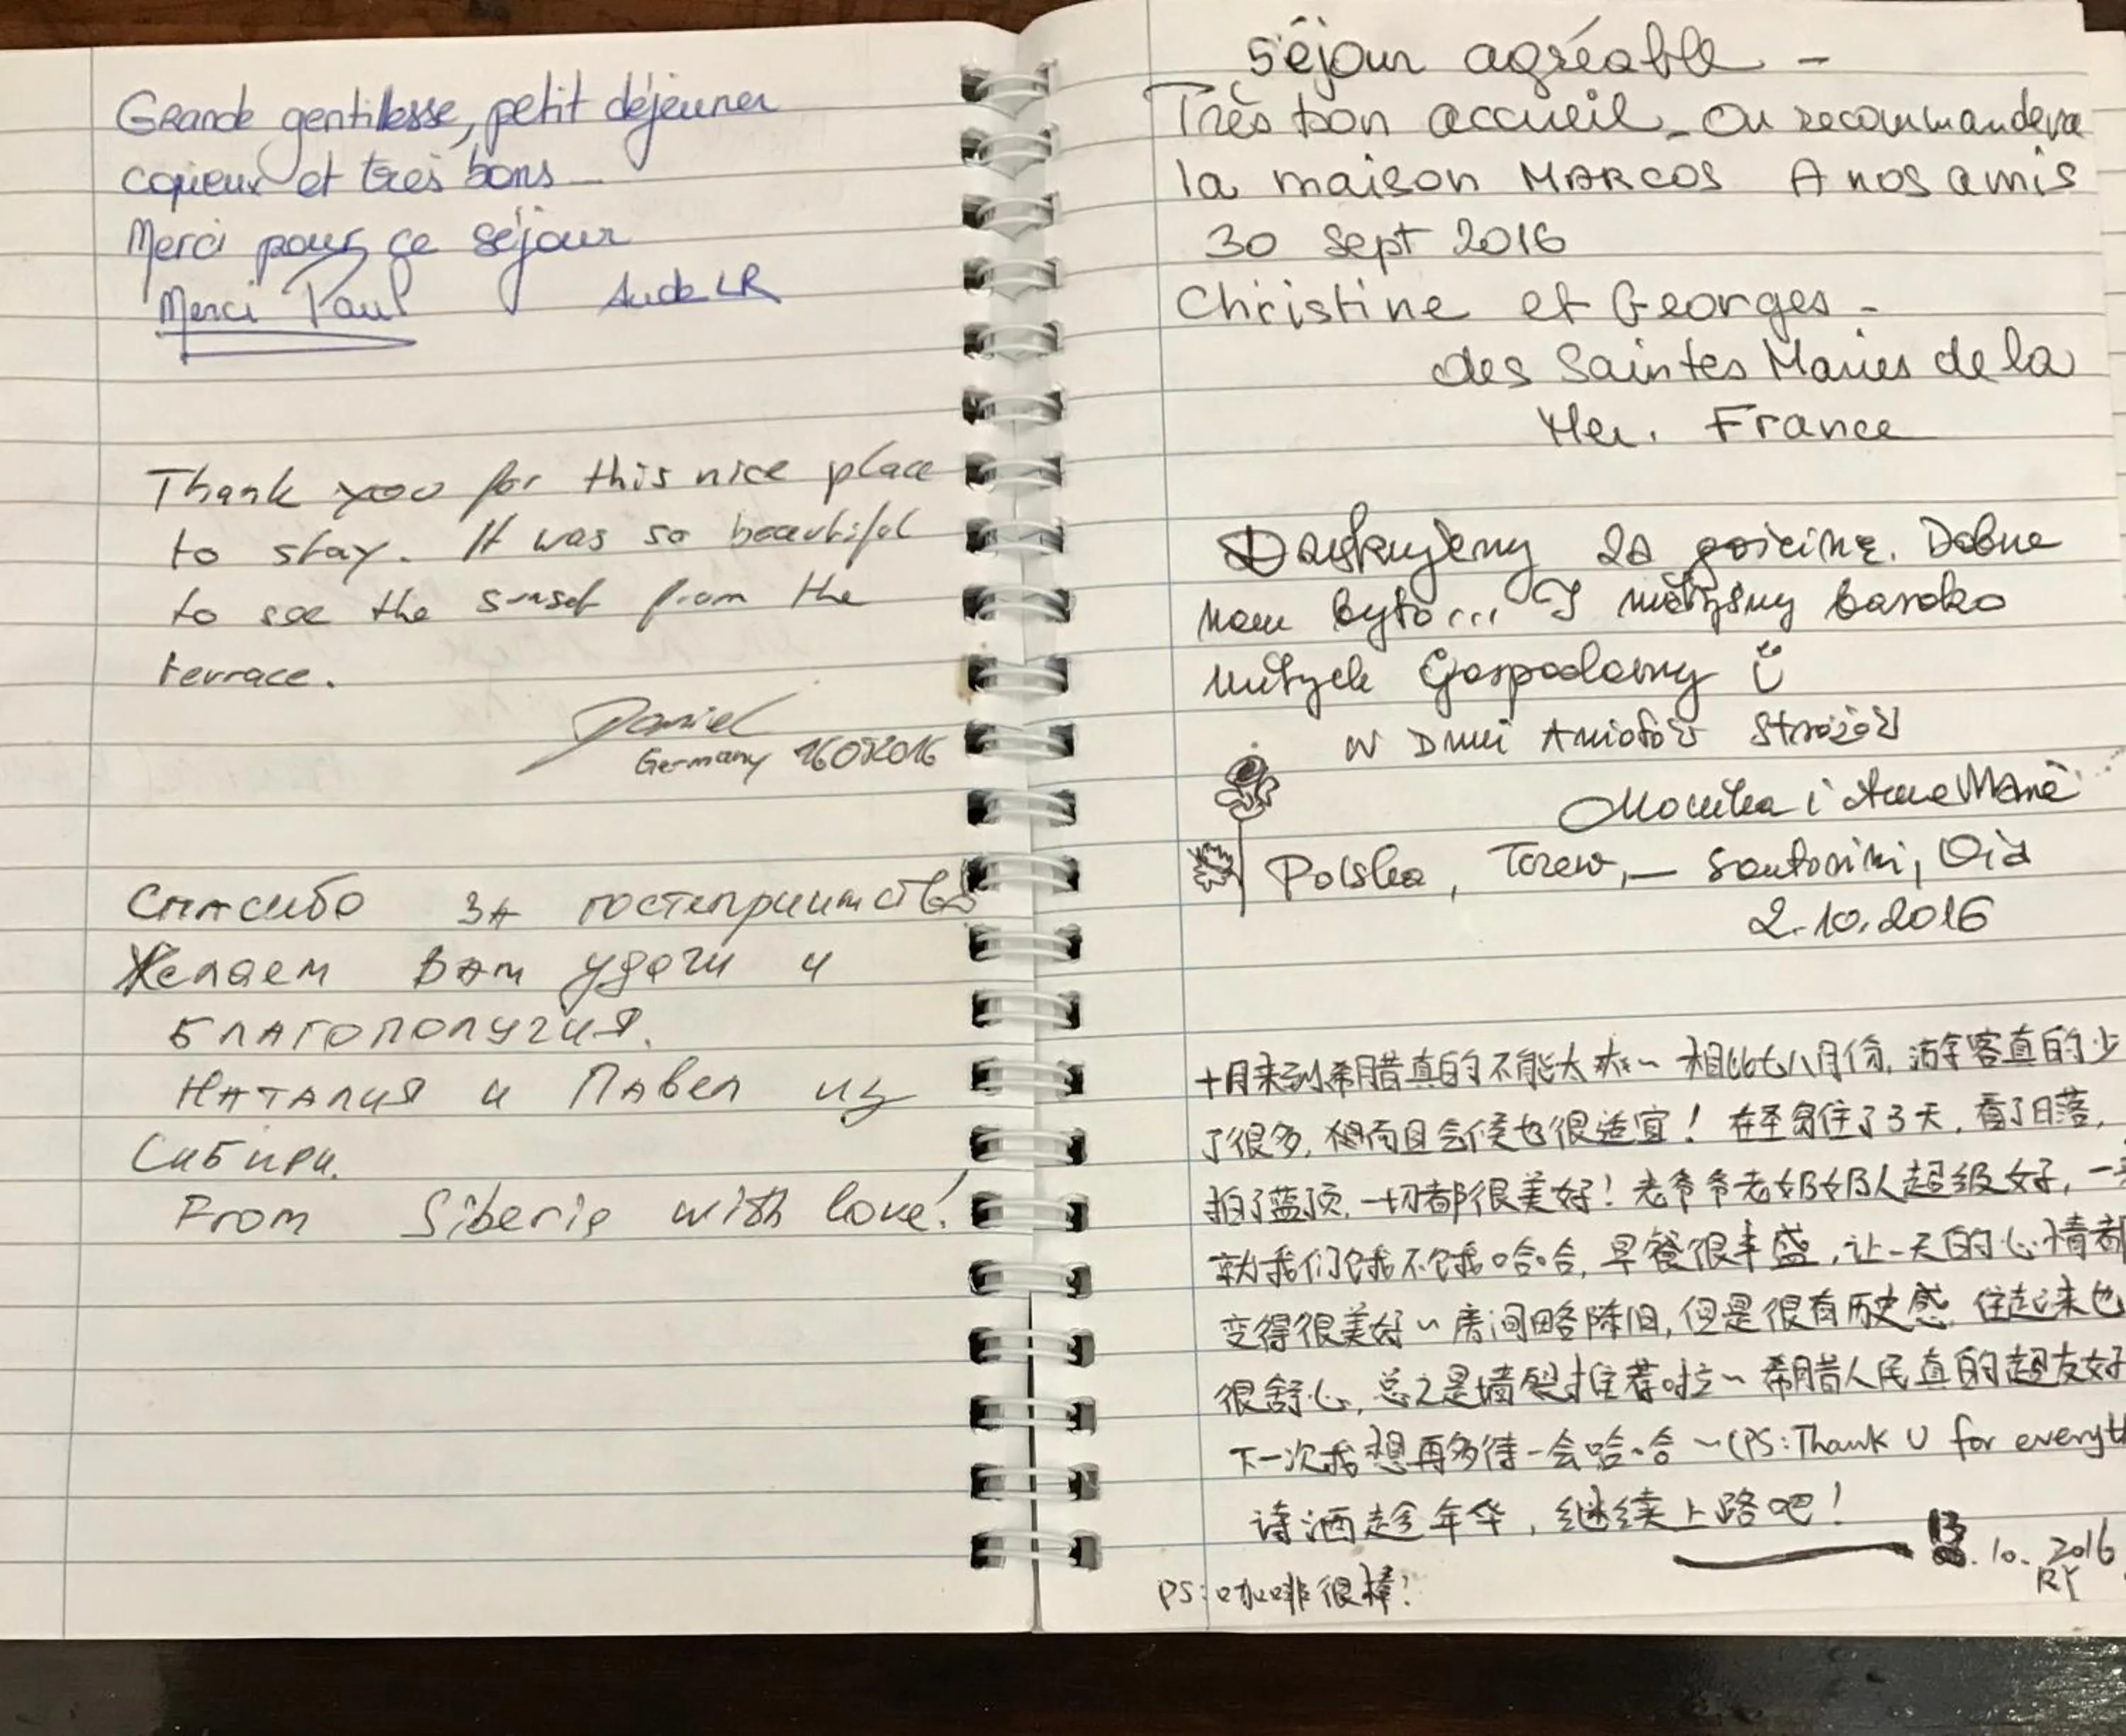 Grande gentillesse, petit déjeuner
copieux et très bons
Merci pour ce séjour
Merci Paul Aude LR
Thank you for this nice place
to stay. It was so beautiful
to see the sunset from the
terrace.
Daniel
Germany
Спасибо за гостеприимство
Желаем Вам удачи и
благополучия.
Наталия и Павел из
Сибири.
From Siberia with love!
Séjour agréable -
Très bon accueil - On recommandera
la maison MARCOS A nos amis
30 Sept 2016
Christine et Georges -
des Saintes Maries de la
Mer. France
Dziękujemy za gościnę. Dobrze
nam było... I mieliśmy bardzo
miłych Gospodarzy
w Dniu Aniołów Stróżów
Monika i
Polska, Tczew, — Santorini, Oia
2.10.2016
十月来到希腊真的不能太爽~ 相比七八月份, 游客真的少
了很多, 而且气候也很适宜! 在这住了3天, 看了日落,
拍了蓝顶, 一切都很美好! 老爷爷老奶奶人超级好, 一
我们饿不饿哈哈, 早餐很丰盛, 让一天的心情都
变得很美好~ 房间略陈旧, 但是很有历史感, 住起来也
很舒心, 总之是墙裂推荐啦~ 希腊人民真的超友好
下一次我想再多待一会哈哈~(PS:Thank U for everyth
诗酒趁年华, 继续上路吧!
13.10.2016
RY
PS:咖啡很棒!